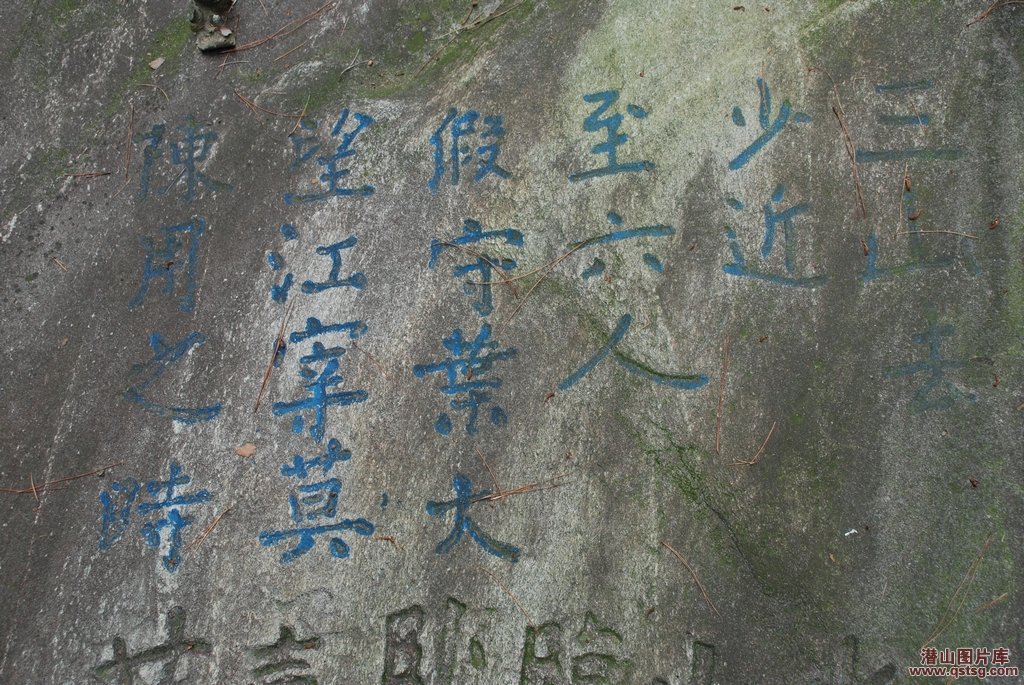 三山去
少近
至六人
假守葉大
望江宰莫
陳用之時
潜山图片库
www.qstsg.com